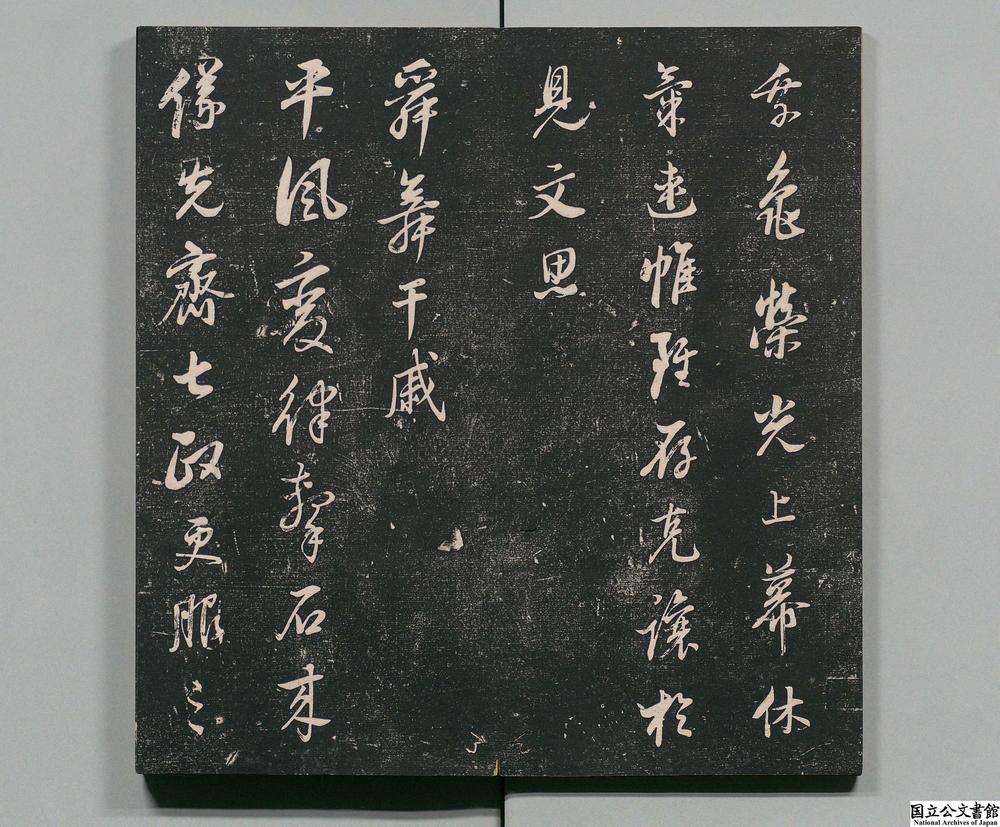 龜榮光上幕休
氣連帷雖存克讓於
見文思
舜舞干戚
平風變律擊石來
儀先齊七政更服三
国立公文書館
National Archives of Japan